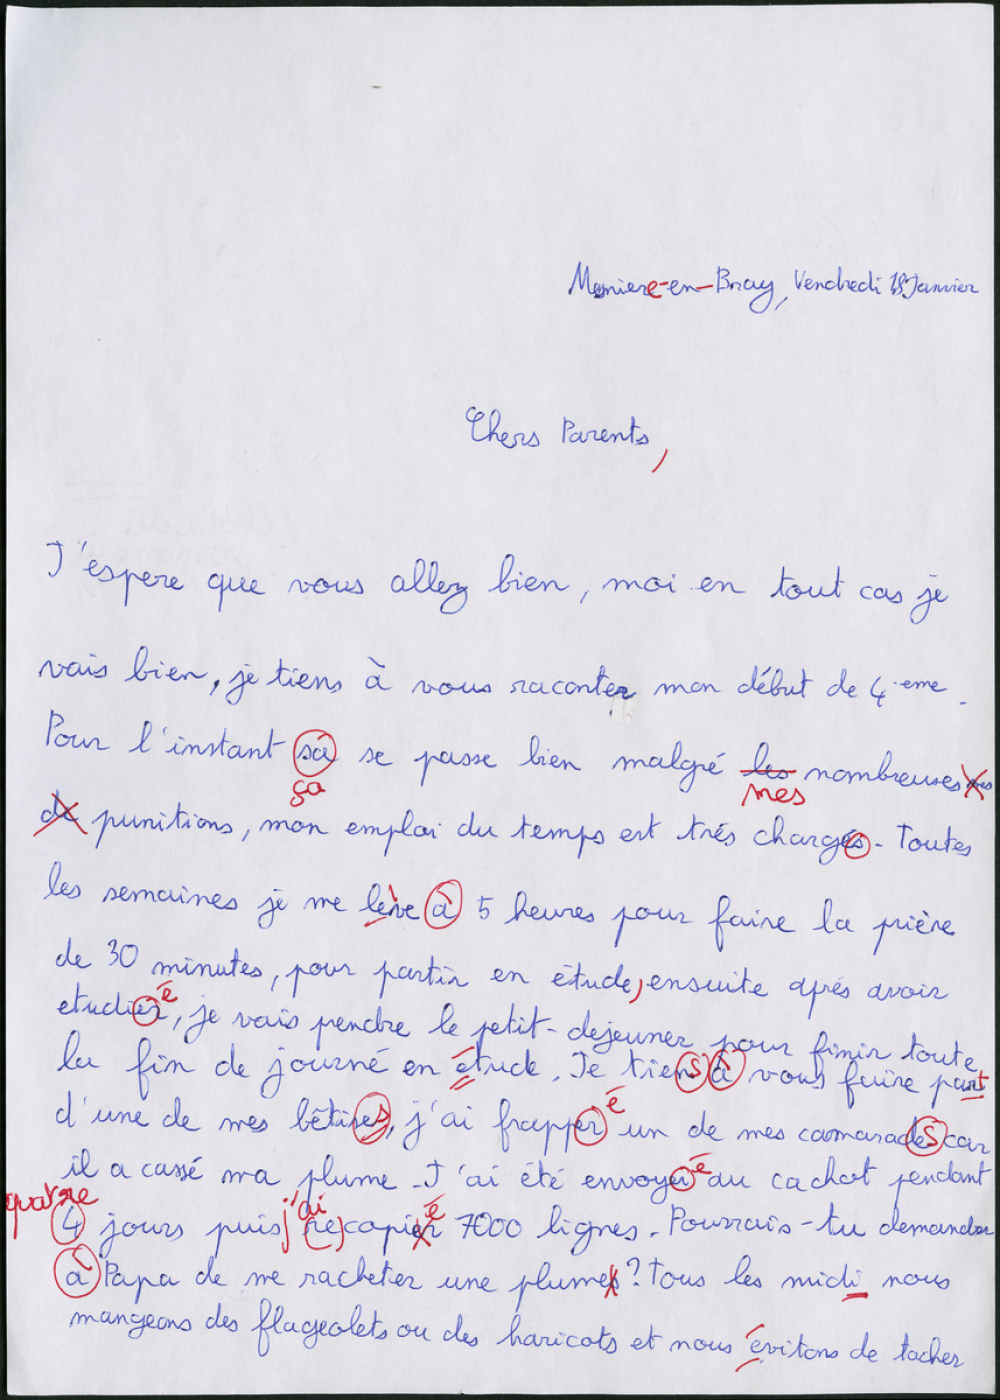 Mesniere-en-Bray, Vendredi 18 Janvier
Chers Parents,
J'éspere que vous allez bien, moi en tout cas je
vais bien, je tiens à vous raconter mon début de 4.eme.
Pour l'instant sa se passe bien malgré les nombreuses
ça mes
de punitions, mon emploi du temps est trés chargés. Toutes
les semaines je me lève à 5 heures pour faire la prière
de 30 minutes, pour partir en étude, ensuite aprés avoir
é
etudier, je vais pendre le petit-dejeuner pour finir toute
la fin de journé en étude. Je tiens à vous faire part
é
d'une de mes bêtises, j'ai frapper un de mes camarades car
é
il a cassé ma plume. J'ai été envoyer au cachot pendant
quatre j'ai é
4 jours puis recopier 7000 lignes. Pourrais-tu demander
à Papa de me racheter une plumes? Tous les midi nous
mangeons des flageolets ou des haricots et nous évitons de tacher